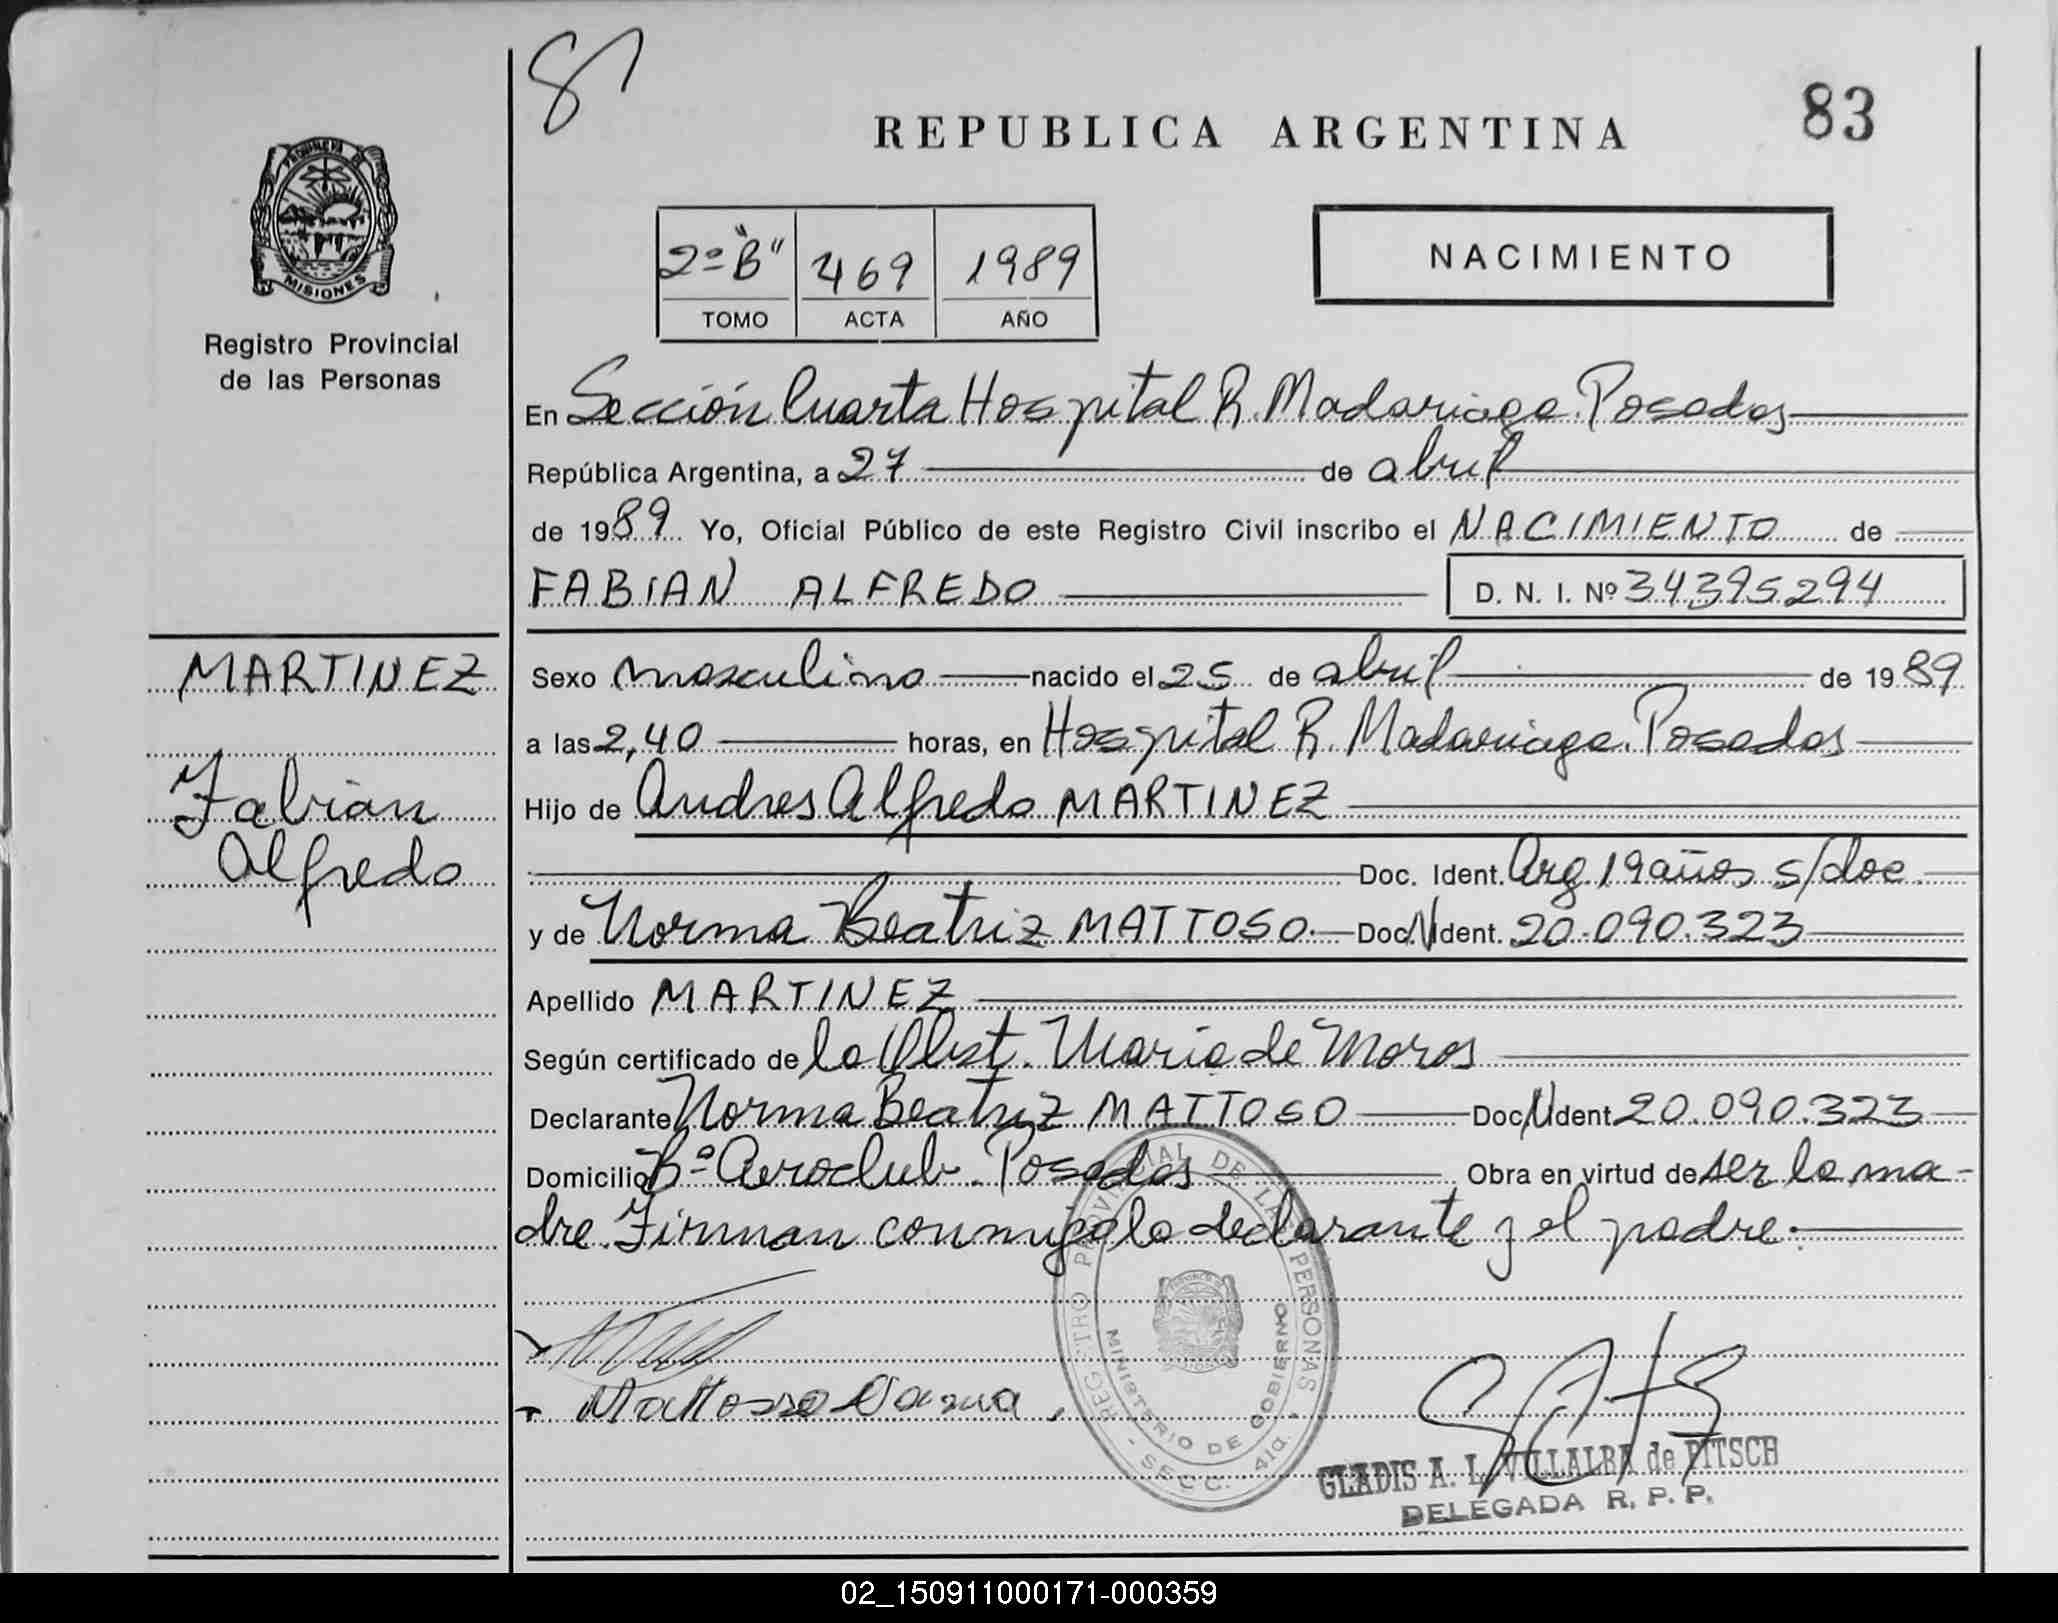 83
REPUBLICA ARGENTINA
PROVINCIA DE
MISIONES
Registro Provincial
de las Personas
2º "B" 469 1989
TOMO ACTA AÑO
NACIMIENTO
En Sección Cuarta Hospital R. Madariaga. Posadas
República Argentina, a 27 de abril
de 1989 Yo, Oficial Público de este Registro Civil inscribo el NACIMIENTO de
FABIAN ALFREDO D. N. I. Nº 34395294
MARTINEZ
Fabian
Alfredo
Sexo masculino nacido el 25 de abril de 1989
a las 2,40 horas, en Hospital R. Madariaga. Posadas
Hijo de Andres Alfredo MARTINEZ
Doc. Ident. Arg. 19 años s/doc.
y de Norma Beatriz MATTOSO. Doc. N Ident. 20.090.323
Apellido MARTINEZ
Según certificado de la Obst. Maria de Moros
Declarante Norma Beatriz MATTOSO Doc. N Ident. 20.090.323
Domicilio Bº Aeroclub. Posadas Obra en virtud de ser la ma-
dre. Firman conmigo la declarante y el padre.
REGISTRO PROVINCIAL DE LAS PERSONAS
MINISTERIO DE GOBIERNO
- SECC. 4ta. -
Mattosso
GLADIS A. L. VILLALBA de PITSCH
DELEGADA R. P. P.
02_150911000171-000359